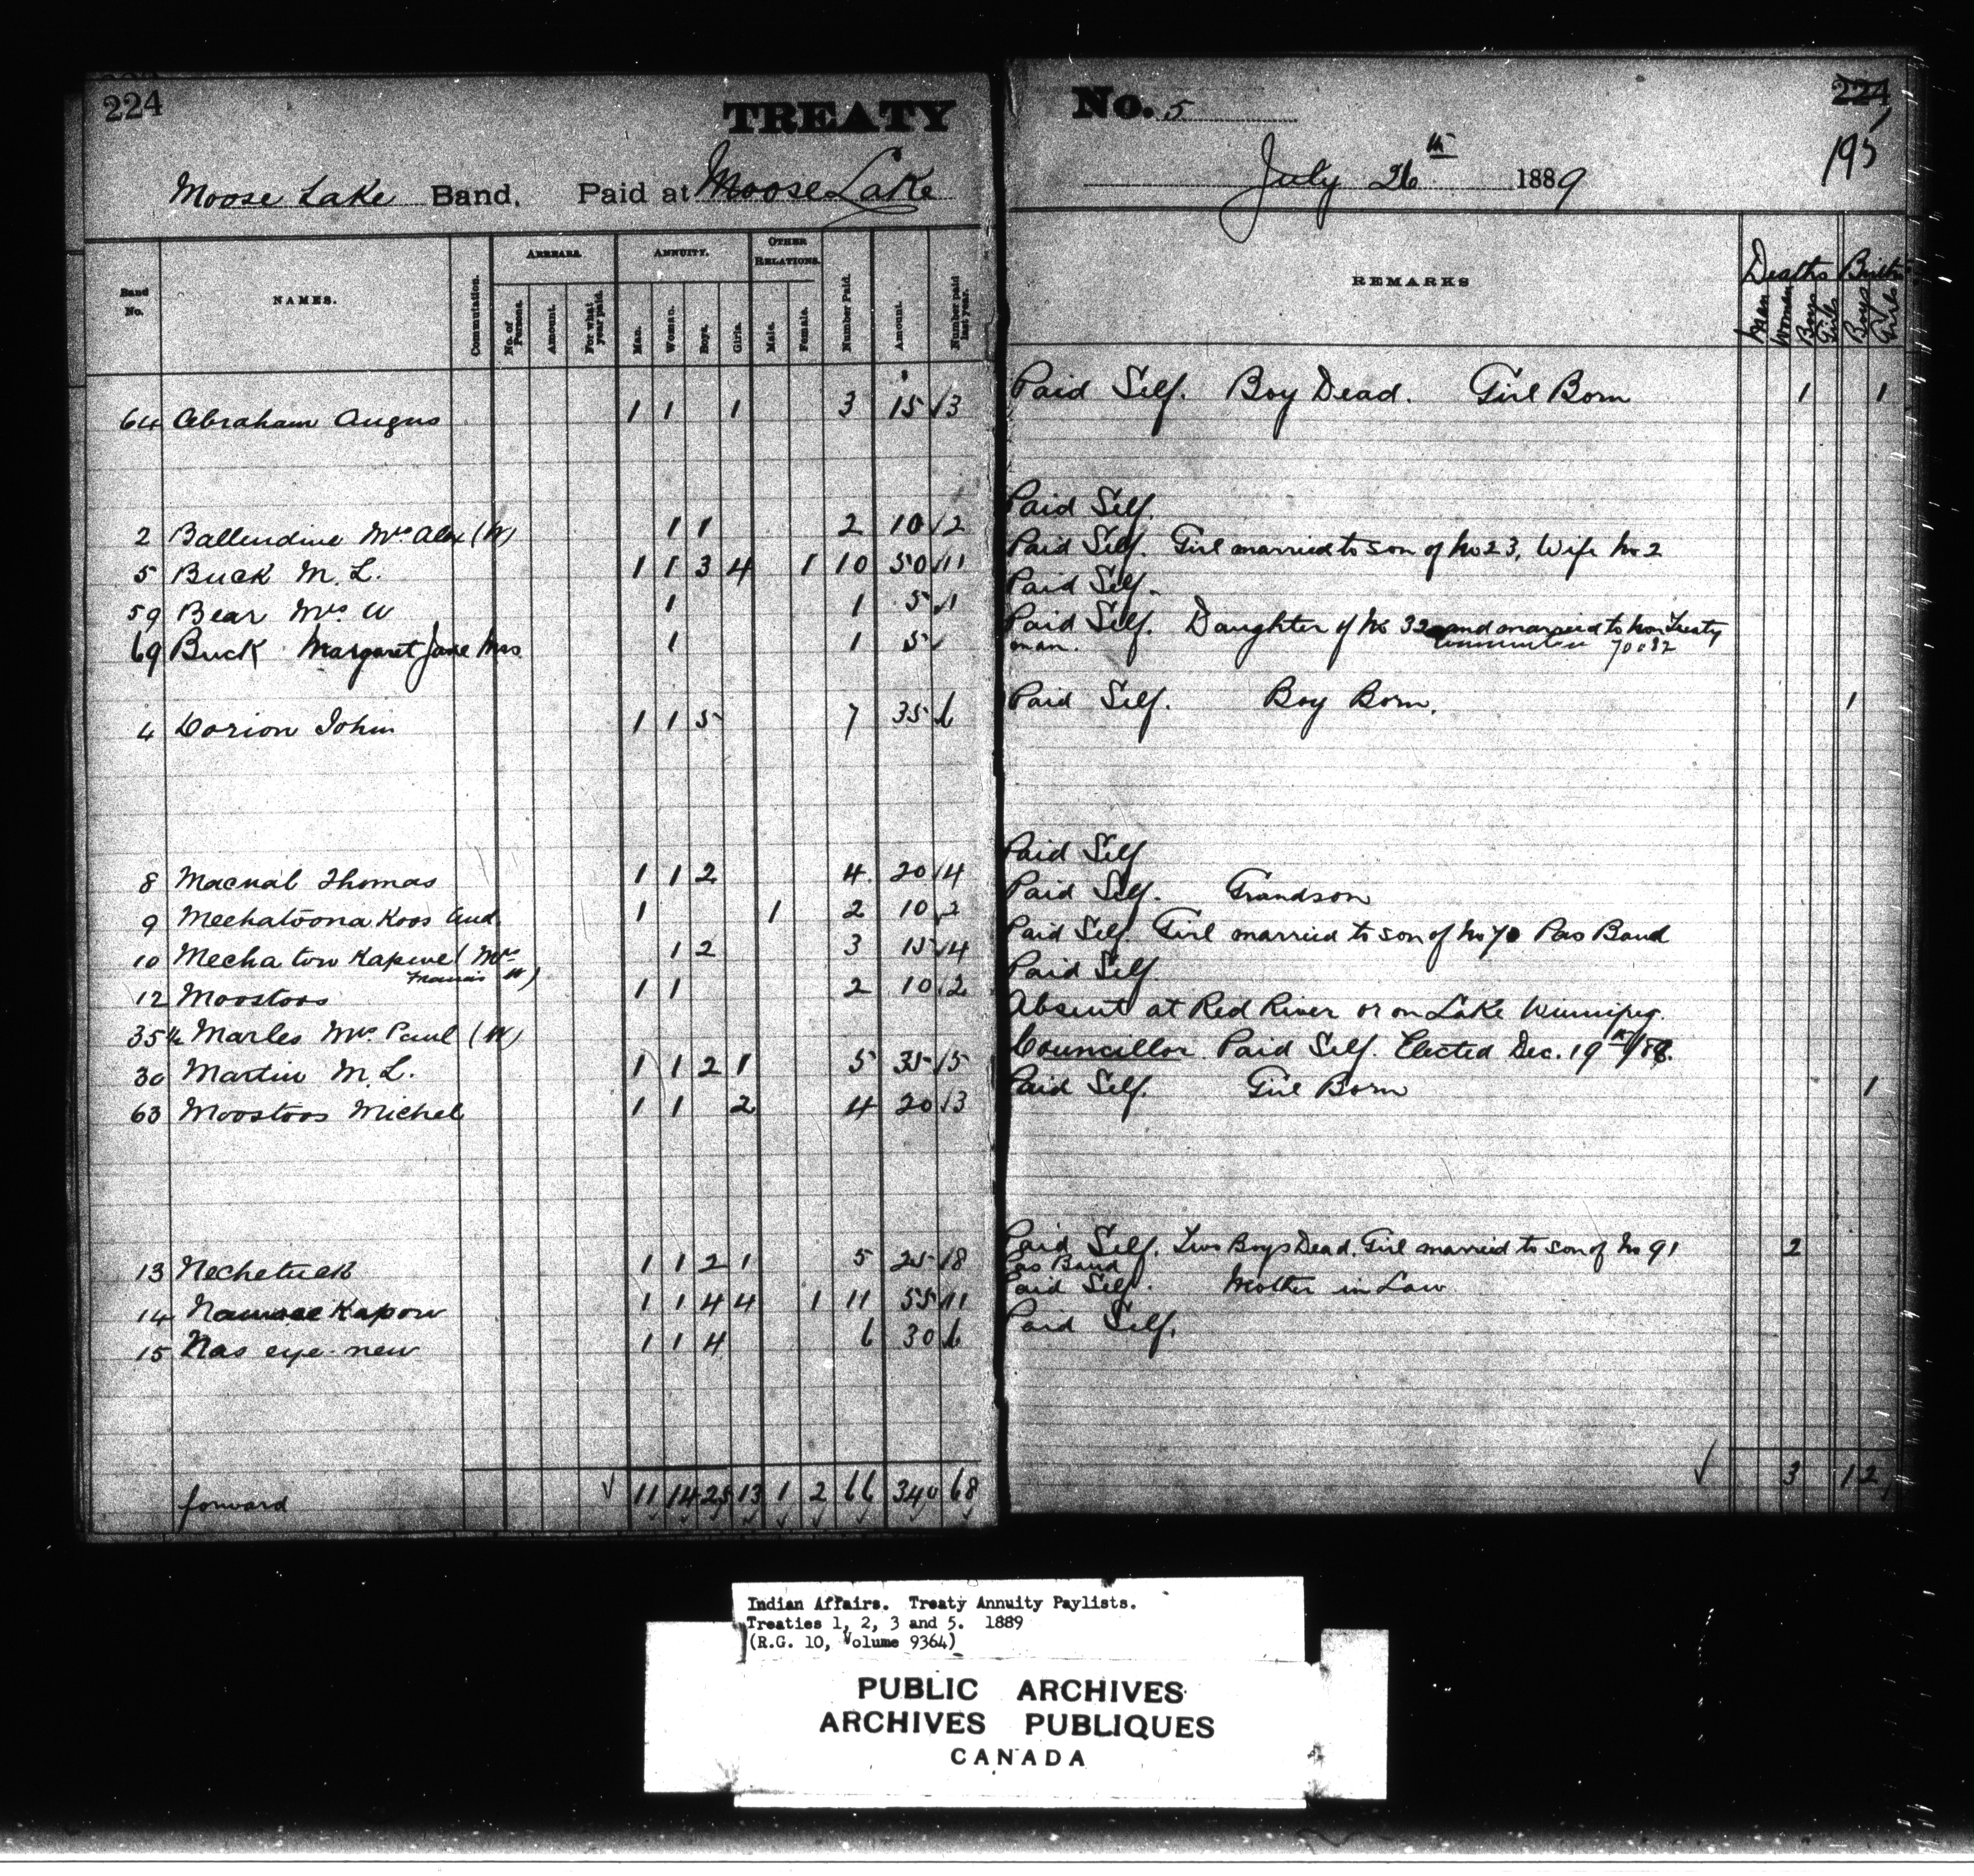 224 TREATY No. 5 224
195
Moose Lake Band, Paid at Moose Lake July 26th 1889
Band No. NAMES. Commutation. ARREARS. ANNUITY. OTHER RELATIONS. Number Paid. Amount. Number paid last year. REMARKS Deaths Births
No. of Persons. Amount. For what year paid. Man. Woman. Boys. Girls. Male. Female. Men Women Boys Girls Boys Girls
64 Abraham Angus 1 1 1 3 15 3 Paid Self. Boy Dead. Girl Born 1 1
2 Ballendine Mrs Alex (W) 1 1 2 10 2 Paid Self.
5 Buck M. L. 1 1 3 4 1 10 50 11 Paid Self. Girl married to son of No 23, Wife No 2
59 Bear Mrs W 1 1 5 1 Paid Self.
69 Buck Margaret Jane Mrs 1 1 5 Paid Self. Daughter of No 32 and married to non Treaty
man. 70082
4 Dorion John 1 1 5 7 35 6 Paid Self. Boy Born. 1
8 Macnab Thomas 1 1 2 4 20 4 Paid Self
9 Mechatoona Koos And. 1 1 2 10 2 Paid Self. Grandson
10 Mecha tow Kapwe (Mrs 1 2 3 15 4 Paid Self. Girl married to son of No 70 Pas Band
W)
12 Moostoos 1 1 2 10 2 Paid Self
35½ Marles Mrs. Paul (W) Absent at Red River or on Lake Winnipeg.
30 Martin M. L. 1 1 2 1 5 35 5 Councillor Paid Self. Elected Dec. 19th/88.
63 Moostoos Michel 1 1 2 4 20 3 Paid Self. Girl Born 1
13 Nechetuek 1 1 2 1 5 25 8 Paid Self. Two Boys Dead. Girl married to son of No 91 2
Pas Band
14 Namaee Kapow 1 1 4 4 1 11 55 11 Paid Self. Mother in Law
15 Nas eye-new 1 1 4 6 30 6 Paid Self.
forward 11 14 25 13 1 2 66 340 68 3 1 2
Indian Affairs. Treaty Annuity Paylists.
Treaties 1, 2, 3 and 5. 1889
(R.G. 10, Volume 9364)
PUBLIC ARCHIVES
ARCHIVES PUBLIQUES
CANADA